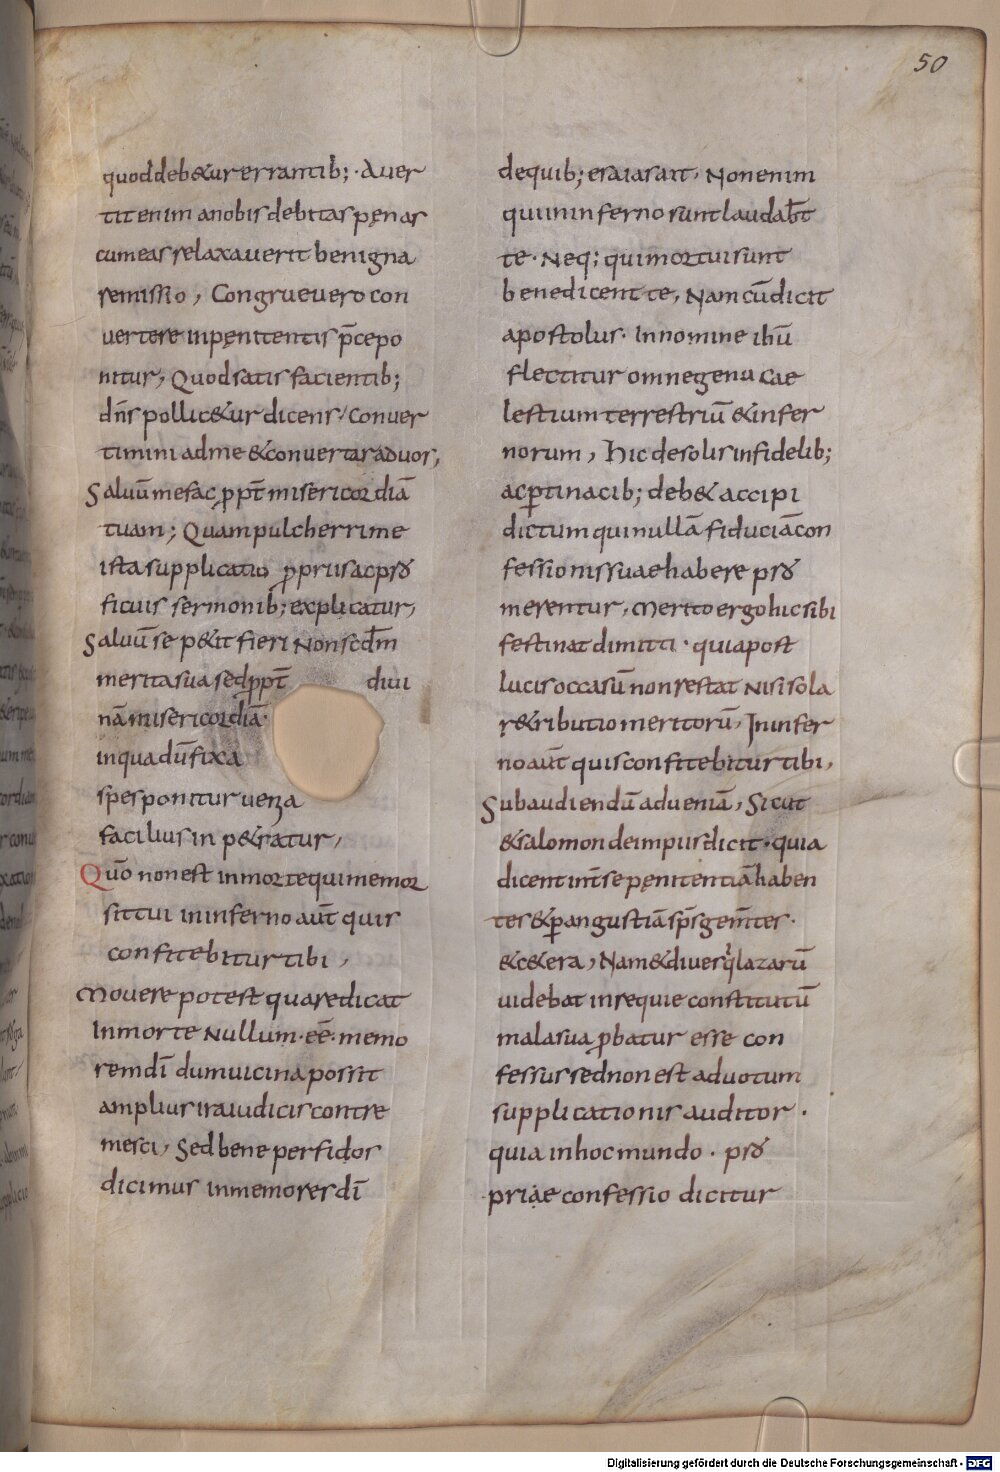 50
quod debetur errantib; · Auer
tit enim a nobis debitas pęnas
cum eas relaxauerit benigna
remissio, Congrue uero con
uertere in pęnitentis p̄cepo
nitur, Quod satis facientib;
dn̄s pollicetur dicens, Conuer
timini ad me & conuertar ad uos,
Saluū me fac ꝓpt̄ misericordiā
tuam; Quam pulcherrime
ista supplicatio ꝓpriis ac prọ
ficuis sermonib; explicatur,
Saluū se petit fieri Non scd̄m
merita sua sed ꝓpt̄ diui
nā misericordiā·
in qua dū fixa
spes ponitur uenia
facilius inpetratur,
Quō non est in morte qui memor
sit tui in inferno aūt quis
confitebitur tibi,
Mouere potest quare dicat
In morte Nullum · eē · memo
rem dī dum uicina possit
amplius ira iudicis contre
mesci, Sed bene perfidos
dicimus inmemores dī
de quib; esaias ait, Non enim
qui in inferno sunt laudab̄t
te · Neq; qui mortui sunt
benedicent te, Nam cū dicit
apostolus · In nomine ihū
flectitur omne genu cae
lestium terrestriū & infer
norum, Hic de solis infidelib;
ac ꝑtinacib; debet accipi
dictum qui nullā fiduciā con
fessionis suae habere pro
merentur, Merito ergo hic sibi
festinat dimitti · quia post
lucis occasū non restat Nisi sola
retributio meritorū, In infer
no aūt quis confitebitur tibi,
Subaudiendū ad ueniā, Sicut
& salomon de impiis dicit · quia
dicent int̄ se pęnitentiā haben
tes & ꝑ angustiā sp̄s gem̄tes ·
& cetera, Nam & diues q̇ lazarū
uidebat in requie constitutū
mala sua ꝓbatur esse con
fessus sed non est ad uotum
supplicationis auditor ·
quia in hoc mundo · pro
priae confessio dicitur
Digitalisierung gefördert durch die Deutsche Forschungsgemeinschaft - DFG